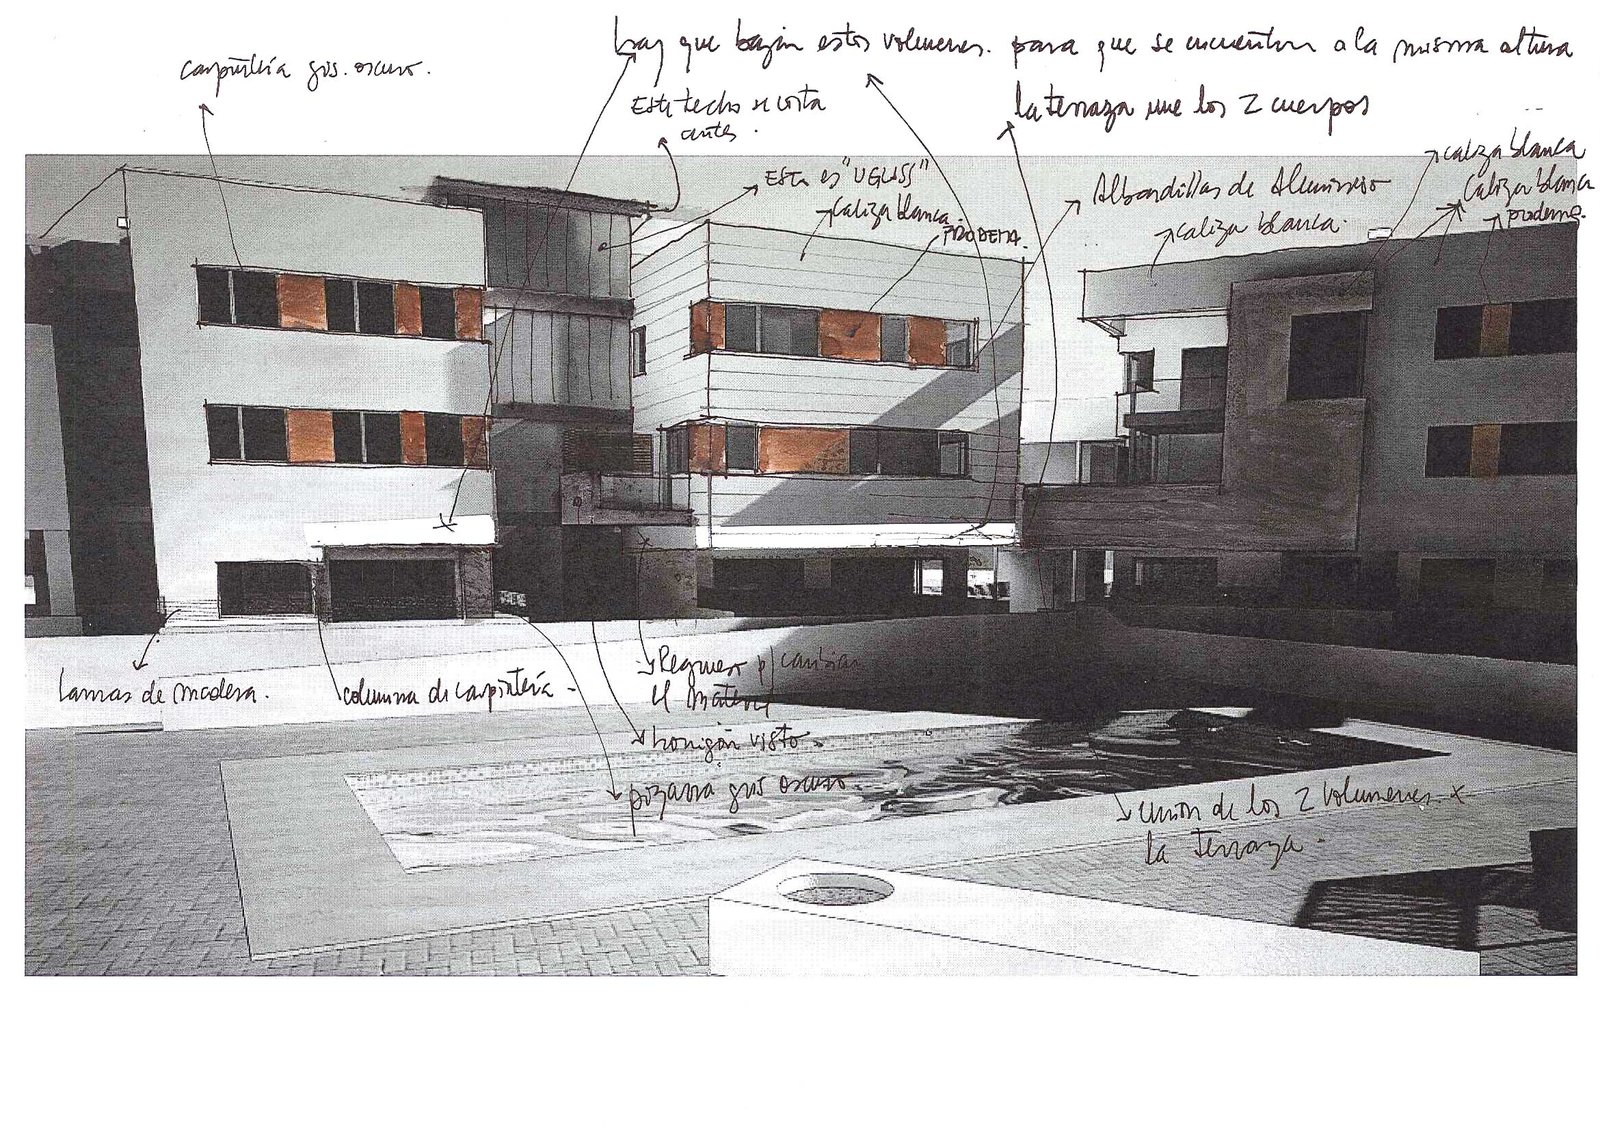 hay que bajar estos volumenes. para que se encuentren a la misma altura
carpintería gris. oscuro.
Este techo se corta
antes.
la terraza une los 2 cuerpos
Esta es "UGLASS"
caliza blanca.
PRODEMA.
Albardillas de Aluminio
caliza blanca.
caliza blanca
caliza blanca
prodema.
lamas de madera.
columna de carpintería.
Regrueso p/ cambiar
el material
hormigón visto.
pizarra gris oscuro.
unión de los 2 volumenes. x
la terraza.